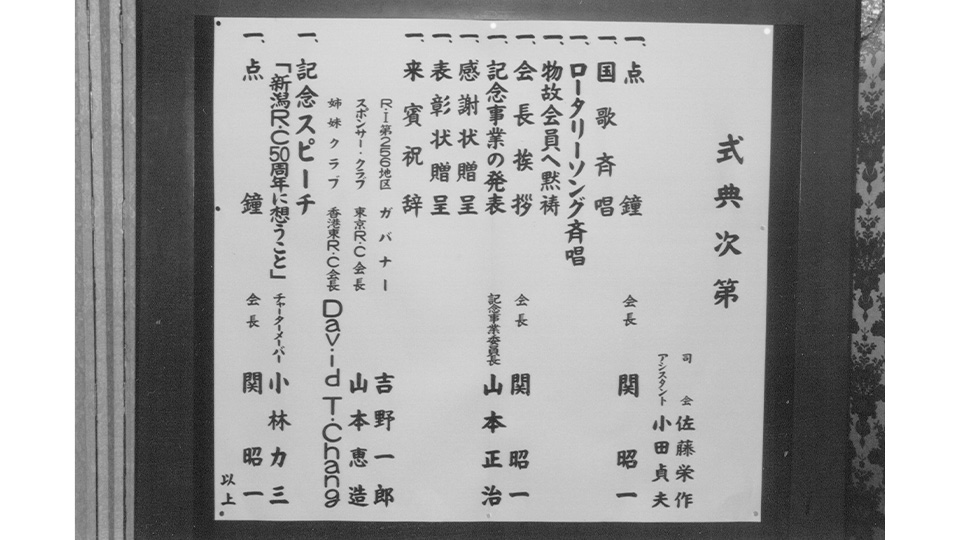 式典次第
司会 佐藤栄作
アシスタント 小田貞夫
一、点鐘 会長 関昭一
一、国歌斉唱
一、ロータリーソング斉唱
一、物故会員へ黙祷
一、会長挨拶 会長 関昭一
一、記念事業の発表 記念事業委員長 山本正治
一、感謝状贈呈
一、表彰状贈呈
一、来賓祝辞
R・I第256地区 ガバナー 吉野一郎
スポンサー・クラブ 東京R・C会長 山本恵造
姉妹クラブ 香港東R・C会長 David T・Chang
一、記念スピーチ
「新潟R・C50周年に想うこと」 チャーターメーバー 小林力三
一、点鐘 会長 関昭一
以上